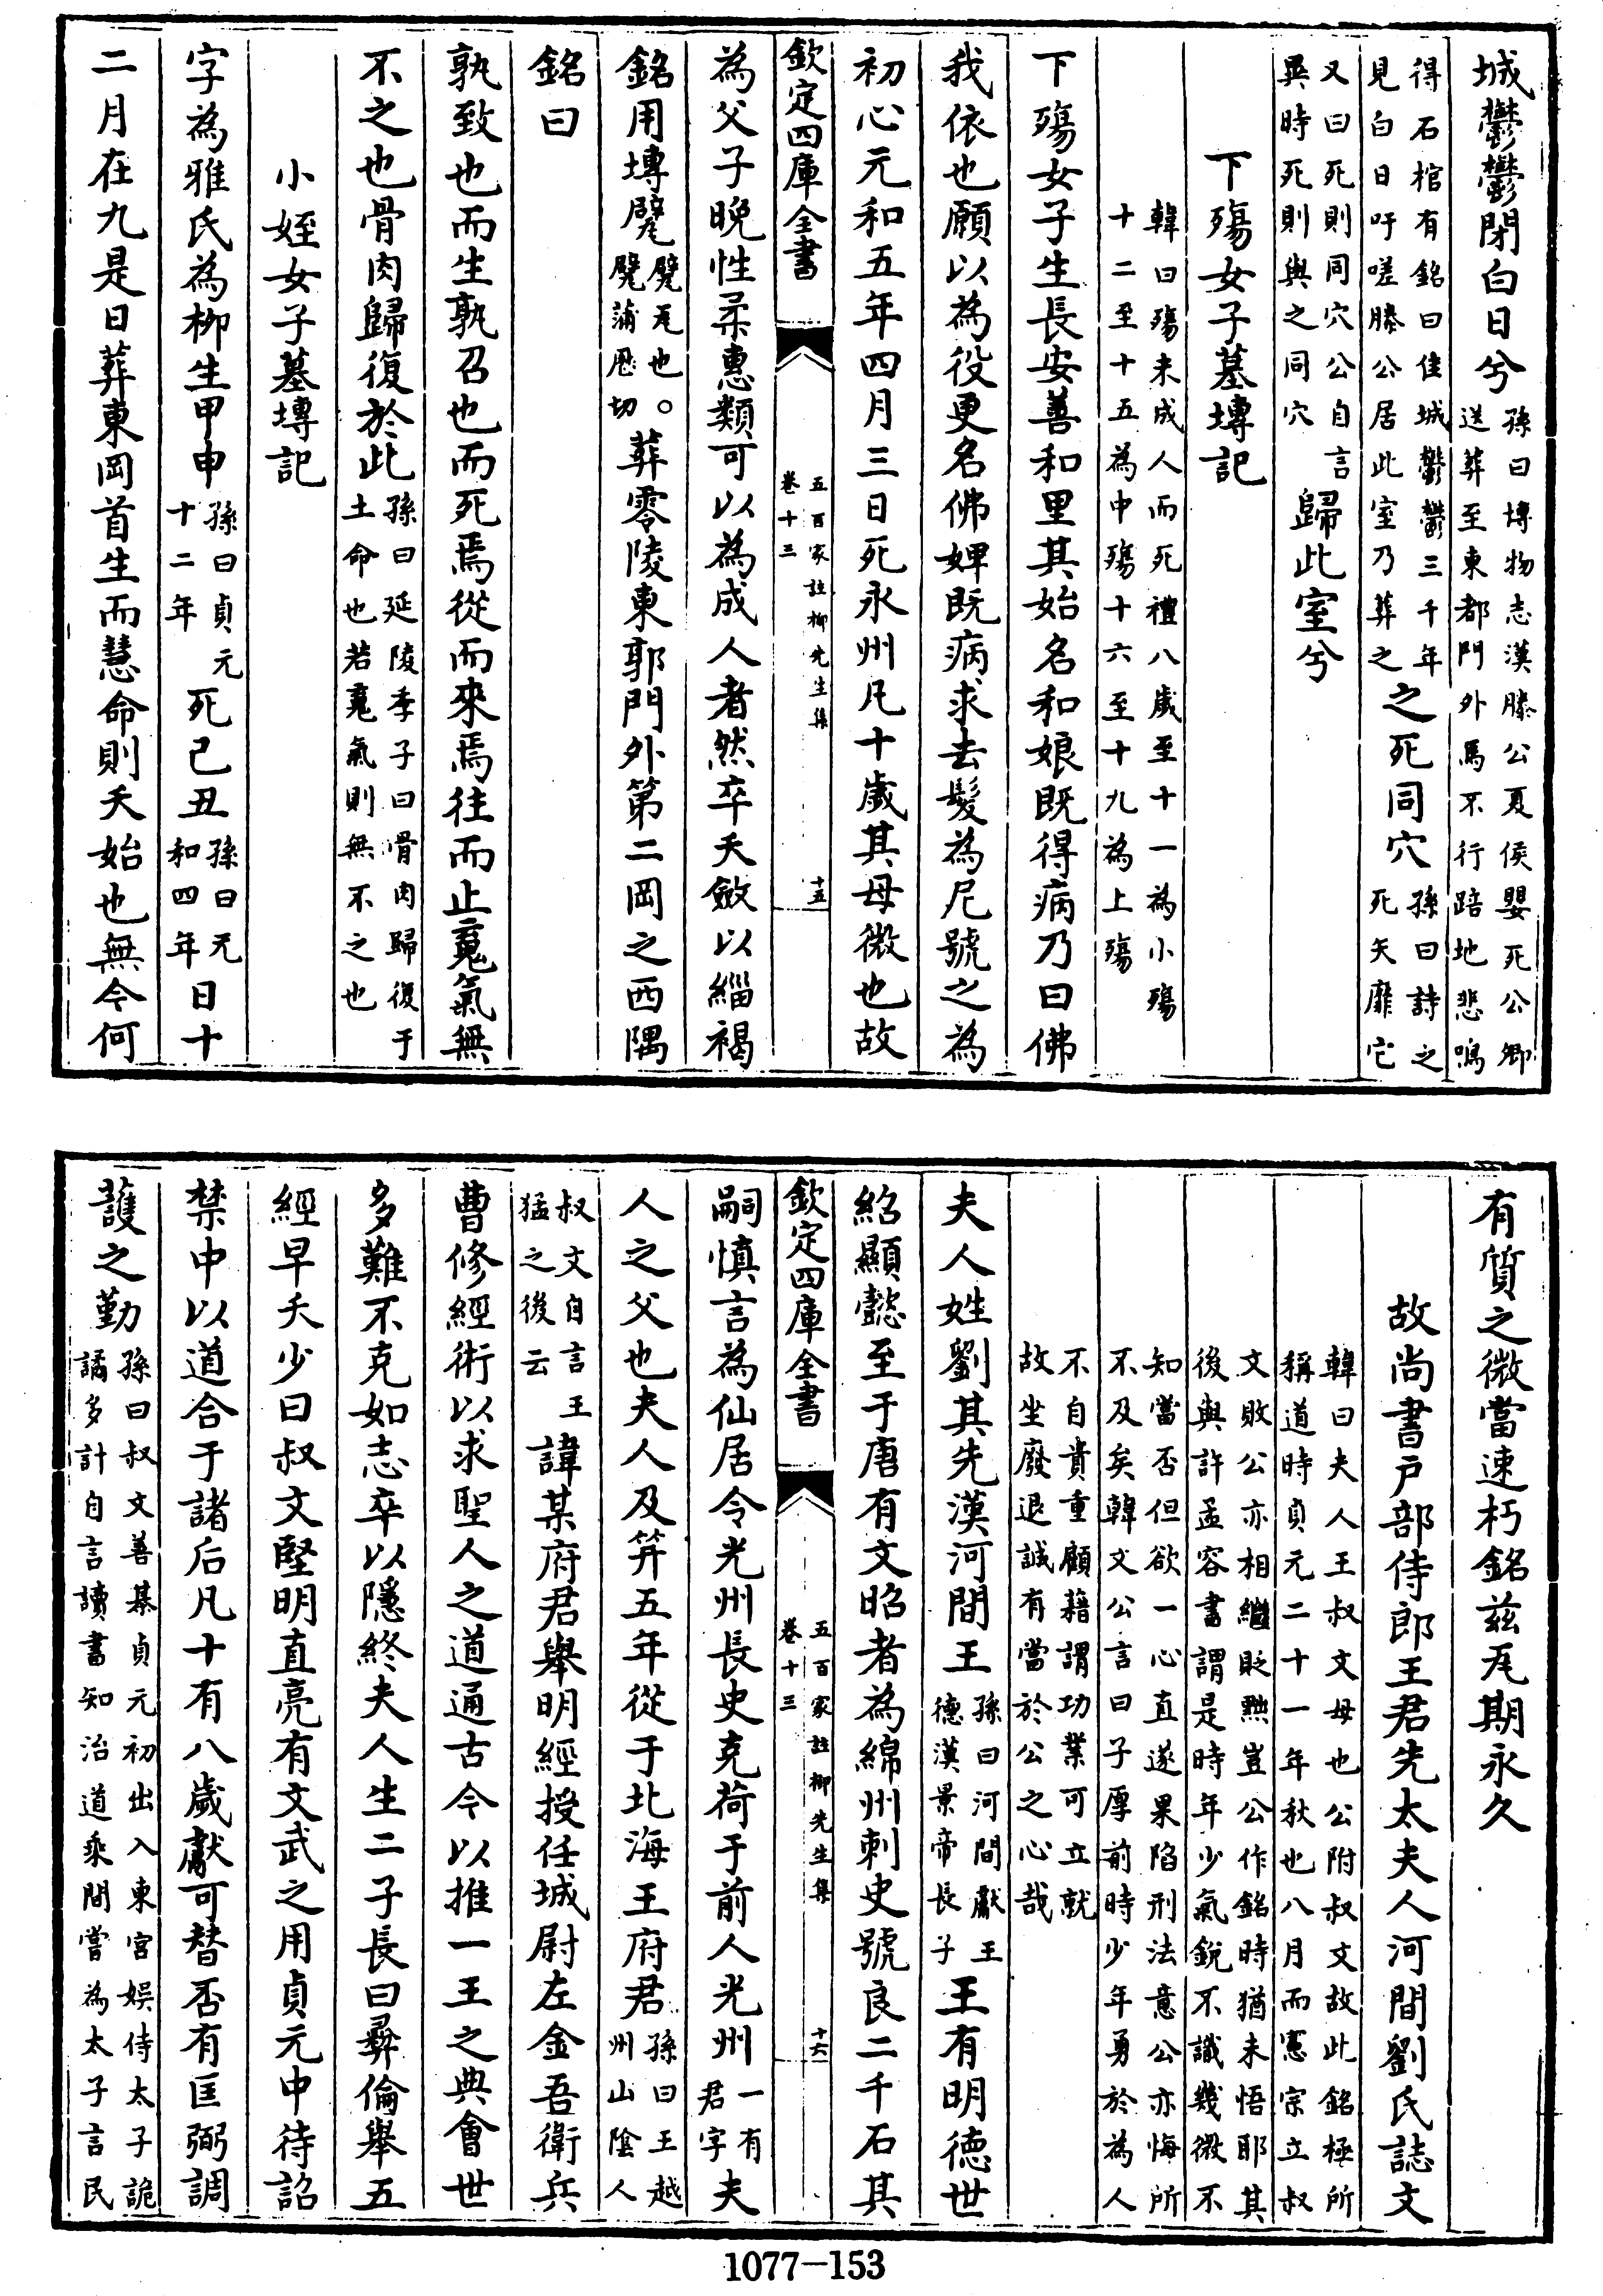 城鬱鬱閉白日兮孫曰博物志漢滕公夏侯嬰死公卿送葬至東都門外馬不行踣地悲鳴
得石棺有銘曰佳城鬱鬱三千年見白日吁嗟滕公居此室乃葬之之死同穴孫曰詩之死矢靡它
又曰死則同穴公自言異時死則與之同穴歸此室兮
下殤女子墓塼記
韓曰殤未成人而死禮八歲至十一為小殤十二至十五為中殤十六至十九為上殤
下殤女子生長安善和里其始名和娘既得病乃曰佛
我依也願以為役更名佛婢既病求去髮為尼號之為
初心元和五年四月三日死永州凡十歲其母微也故
欽定四庫全書
五百家註柳先生集
卷十三
十五
為父子晚性柔惠類可以為成人者然卒夭斂以緇褐
銘用塼甓甓瓦也。甓蒲歴切葬零陵東郭門外第二岡之西隅
銘曰
孰致也而生孰召也而死焉從而來焉往而止䰟氣無
不之也骨肉歸復於此孫曰延陵季子曰骨肉歸復于土命也若䰟氣則無不之也
小姪女子墓塼記
字為雅氏為柳生甲申孫曰貞元十二年死己丑孫曰元和四年日十
二月在九是日葬東岡首生而慧命則夭始也無今何
有質之微當速朽銘茲瓦期永久
故尚書戸部侍郎王君先太夫人河間劉氏誌文
韓曰夫人王叔文母也公附叔文故此銘極所稱道時貞元二十一年秋也八月而憲宗立叔
文敗公亦相繼貶黜豈公作銘時猶未悟耶其後與許孟容書謂是時年少氣銳不識幾微不
知當否但欲一心直遂果陷刑法意公亦悔所不及矣韓文公言曰子厚前時少年勇於為人
不自貴重顧藉謂功業可立就故坐廢退誠有當於公之心哉
夫人姓劉其先漢河間王孫曰河間獻王德漢景帝長子王有明德世
紹顯懿至于唐有文昭者為綿州刺史號良二千石其
欽定四庫全書
五百家註柳先生集
卷十三
十六
嗣慎言為仙居令光州長史克荷于前人光州一有君字夫
人之父也夫人及笄五年從于北海王府君孫曰王越州山陰人
叔文自言王猛之後云諱某府君舉明經授任城尉左金吾衛兵
曹修經術以求聖人之道通古今以推一王之典會世
多難不克如志卒以隱終夫人生二子長曰彛倫舉五
經早夭少曰叔文堅明直亮有文武之用貞元中待詔
禁中以道合于諸后凡十有八歲獻可替否有匡弼調
護之勤孫曰叔文善棊貞元初出入東宮娛侍太子詭譎多計自言讀書知治道乘間嘗為太子言民
1077-153